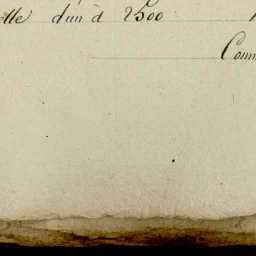 elle d'un à 2500
Com